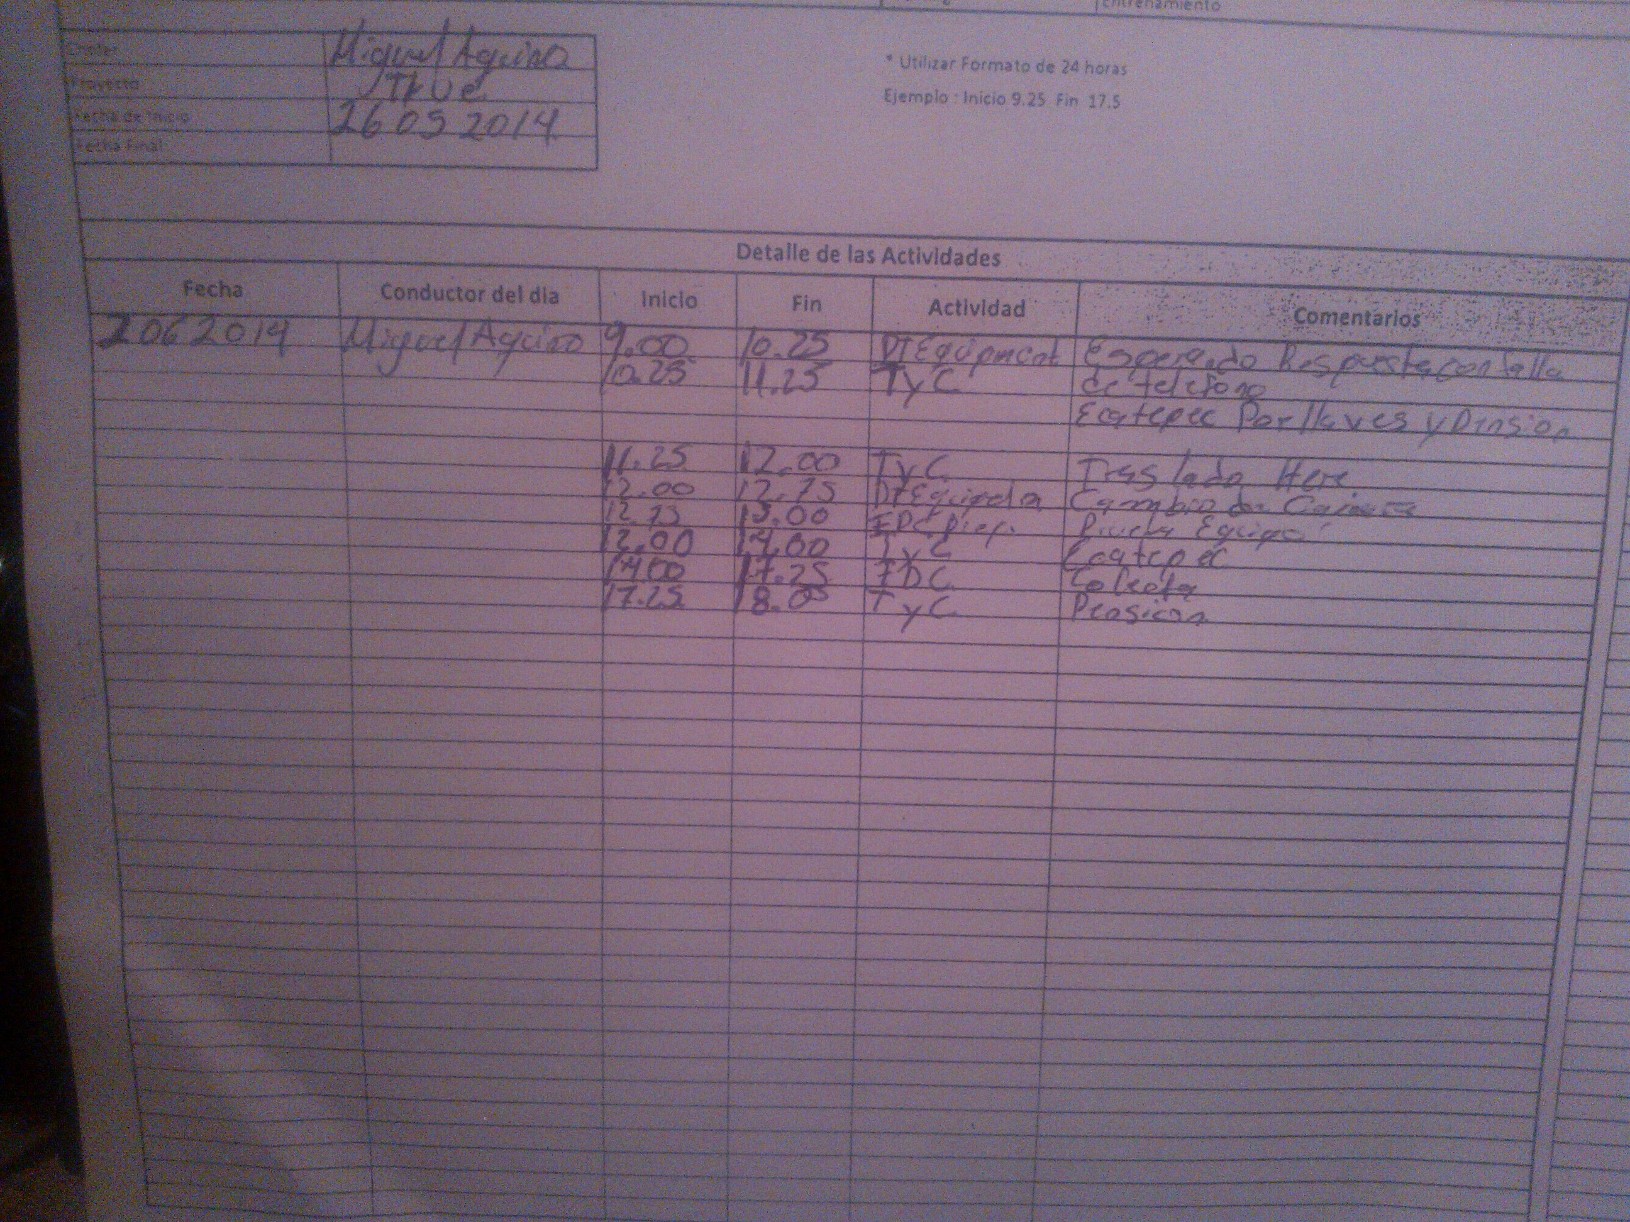 Entrenamiento
Chofer Miguel Aquino
Proyecto True
Fecha de Inicio 26 05 2014
Fecha Final
* Utilizar Formato de 24 horas
Ejemplo : Inicio 9.25 Fin 17.5
Detalle de las Actividades
Fecha Conductor del dia Inicio Fin Actividad Comentarios
2 06 2014 Miguel Aquino 9.00 10.25 DTEquipment Esperando Respuesta con falla
10.25 11.25 TyC de telefono
Ecatepec Por llaves y Pension
11.25 12.00 TyC Traslado Here
12.00 12.75 Cambio de
12.75 13.00 FDC Prep. Prueba Equipo
12.00 14.00 TyC Ecatepec
14.00 17.25 FDC Colecta
17.25 TyC